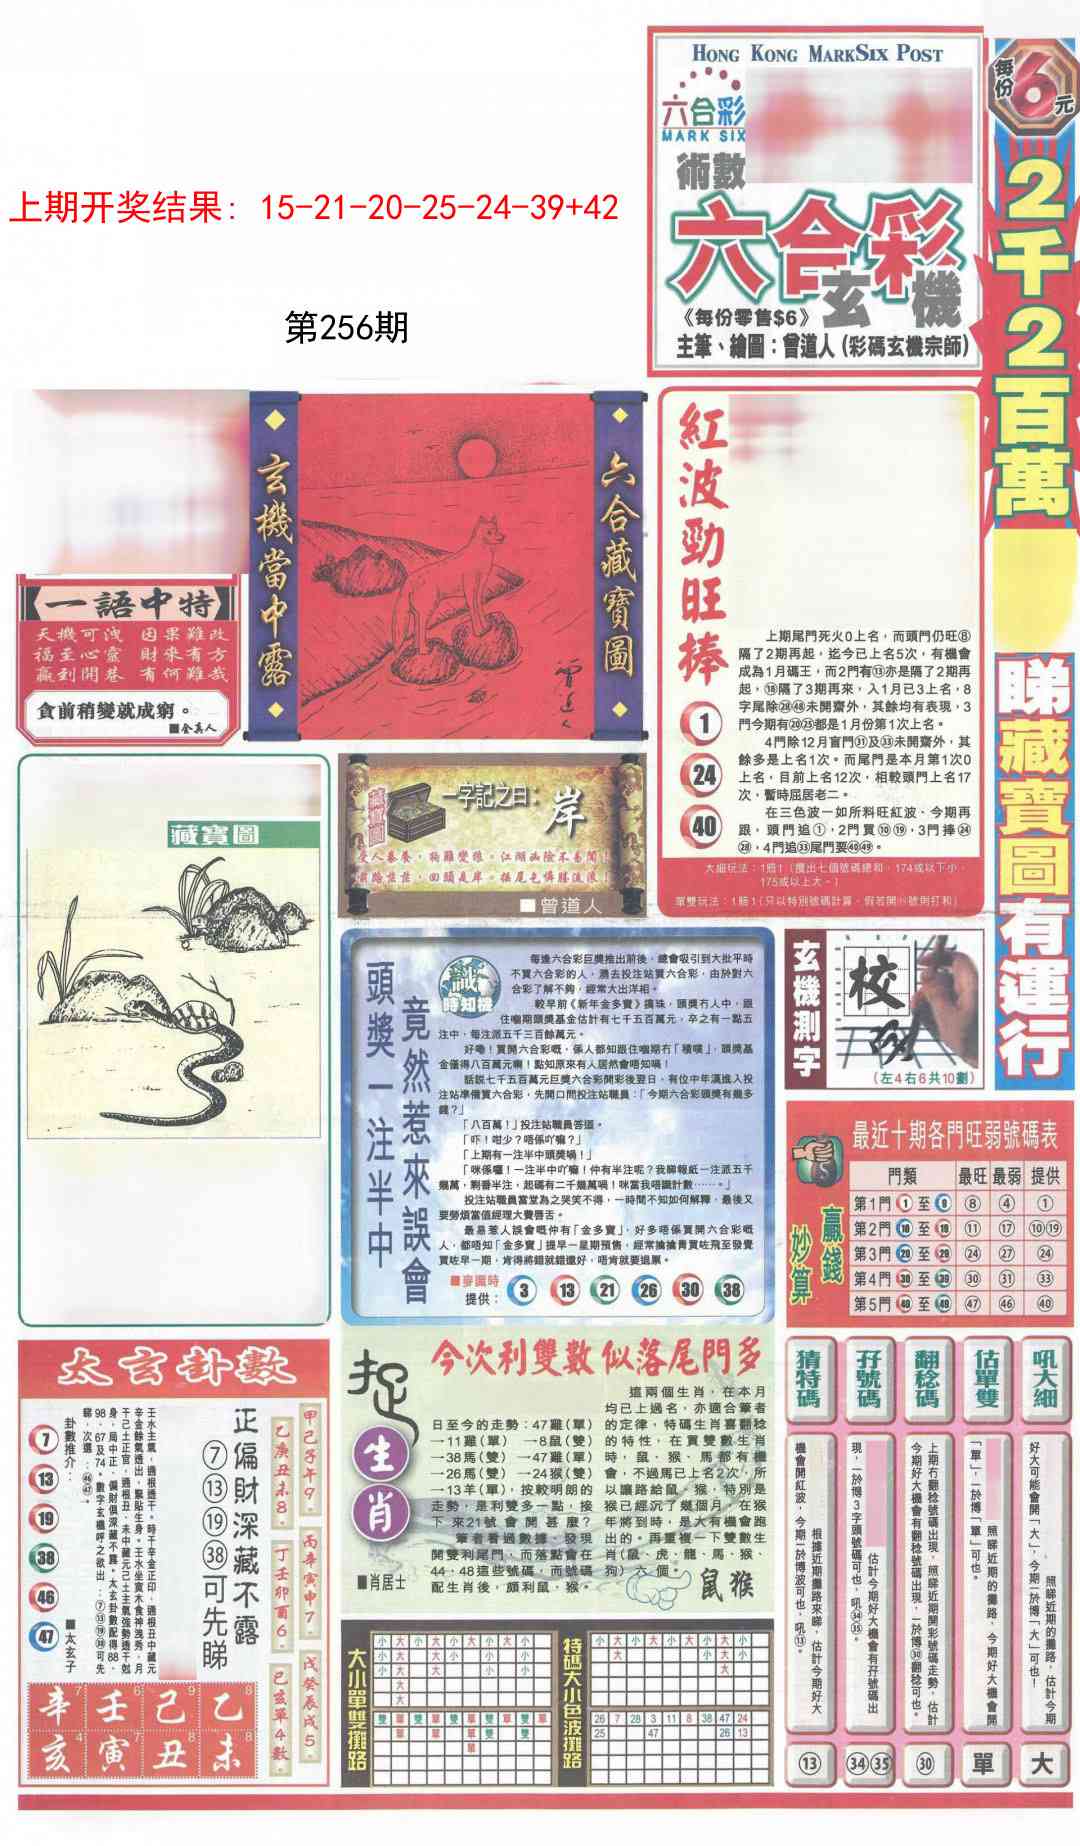 HONG KONG MARKSIX POST
六合彩
MARK SIX
術數
六合彩
玄機
《每份零售$6》
主筆、繪圖：曾道人（彩碼玄機宗師）
每份6元
2千2百萬
睇藏寶圖有運行
上期开奖结果: 15-21-20-25-24-39+42
第256期
一語中特
天機可洩 因果難改
福至心靈 財來有方
贏到開巷 有何難哉
食前稍變就成窮。
■全真人
玄機當中露
六合藏寶圖
曾道人
紅波勁旺捧
1
24
40
上期尾門死火0上名，而頭門仍旺⑧
隔了2期再起，迄今已上名5次，有機會
成為1月碼王，而2門有⑬亦是隔了2期再
起，⑱隔了3期再來，入1月已3上名，8
字尾除㉘㊽未開齋外，其餘均有表現，3
門今期有⑳㉕都是1月份第1次上名。
4門除12月盲門㉛及㉝未開齋外，其
餘多是上名1次。而尾門是本月第1次0
上名，目前上名12次，相較頭門上名17
次，暫時屈居老二。
在三色波一如所料旺紅波、今期再
跟，頭門追①，2門買⑩⑲，3門捧㉔
㉘，4門追㉝尾門要㊵㊾。
大細玩法：1賠1（攪出七個號碼總和，174或以下小，
175或以上大。）
單雙玩法：1賠1（只以特別號碼計算，假若開49號則打和）
藏寶圖
藏寶圖
一字記之曰：岸
■曾道人
頭獎一注半中
竟然惹來誤會
時知機
每逢六合彩巨獎推出前後，總會吸引到大批平時
不買六合彩的人，湧去投注站買六合彩，由於對六
合彩了解不夠，經常大出洋相。
較早前《新年金多寶》攪珠，頭獎冇人中，跟
住嗰期頭獎基金估計有七千五百萬元，卒之有一點五
注中，每注派五千三百餘萬元。
好嘞！買開六合彩嘅，係人都知跟住嗰期冇「積噗」，頭獎基
金僅得八百萬元喇！點知原來有人居然會唔知喎！
話説七千五百萬元巨獎六合彩開彩後翌日，有位中年漢進入投
注站準備買六合彩，先開口問投注站職員：「今期六合彩頭獎有幾多
錢？」
「八百萬！」投注站職員答道。
「吓！咁少？唔係吖嘛？」
「上期有一注半中頭獎喎！」
「咪係囉！一注半中吖嘛！仲有半注呢？我睇報紙一注派五千
幾萬，剩番半注，起碼有二千幾萬喎！咪當我唔識計數……。」
投注站職員當堂為之哭笑不得，一時間不知如何解釋，最後又
要勞煩當值經理大費唇舌。
最易惹人誤會嘅仲有「金多寶」，好多唔係買開六合彩嘅
人，都唔知「金多寶」提早一星期預售，經常搶搶菁買咗飛至發覺
買咗早一期，肯得將錯就錯還好，唔肯就要退票。
■麥圓時
提供：3 13 21 26 30 38
玄機測字
校
（左4右6共10劃）
最近十期各門旺弱號碼表
贏錢妙算
門類 最旺 最弱 提供
第1門 1 至 9 ⑧ ④ ①
第2門 10 至 19 ⑪ ⑰ ⑩⑲
第3門 20 至 29 ㉔ ㉗ ㉔
第4門 30 至 39 ㉚ ㉛ ㉝
第5門 40 至 49 ㊼ ㊻ ㊵
太玄卦數
正偏財深藏不露
⑦⑬⑲㊳可先睇
甲己子午9。
乙庚丑未8。
丙辛寅申7。
丁壬卯酉6。
戊癸辰戌5。
巳亥單4數。
卦數推介：
7
13
19
38
46
47
■太玄子
辛 壬 己 乙
亥 寅 丑 未
捉生肖
今次利雙數 似落尾門多
日至今的走勢：47雞（單）
→11雞（單） →8鼠（雙）
→38馬（雙） →47雞（單）
→26馬（雙） →24猴（雙）
→13羊（單），按較明朗的
走勢，是利雙多一點，接
下來21號會開甚麼？
筆者看過數據，發現
開雙利尾門，而落點會在
44、48這些號碼，而號碼
配生肖後，頗利鼠、猴。
這兩個生肖，在本月
均已上過名，亦適合筆者
的定律，特碼生肖喜翻稔
的特性，在買雙數生肖
時，鼠、猴、馬都有機
會，不過馬已上名2次，所
以讓路給鼠、猴，特別是
猴已經沉了幾個月，在猴
年將到時，是大有機會跑
出的。再重複一下雙數生
肖（鼠、虎、龍、馬、猴、
狗）六個。
■肖居士
鼠猴
大小單雙攤路
特碼大小色波攤路
26 7 28 3 11 8 38 47 24
25 47 26 13
猜特碼
根據近期攤路來睇，估計今期好大
機會開紅波，今期一於博波可也，吼⑬。
⑬
孖號碼
估計今期好大機會有孖號碼出
現，一於博3字頭號碼可也，吼㉞㉟。
㉞㉟
翻稔碼
上期冇翻稔號碼出現，照睇近期開彩號碼走勢，估計
今期好大機會有翻稔號碼出現，一於博㉚翻稔可也。
㉚
估單雙
照睇近期的攤路，今期好大機會開
「單」，一於博「單」可也。
單
吼大細
照睇近期的攤路，估計今期
好大可能會開「大」，今期一於博「大」可也！
大